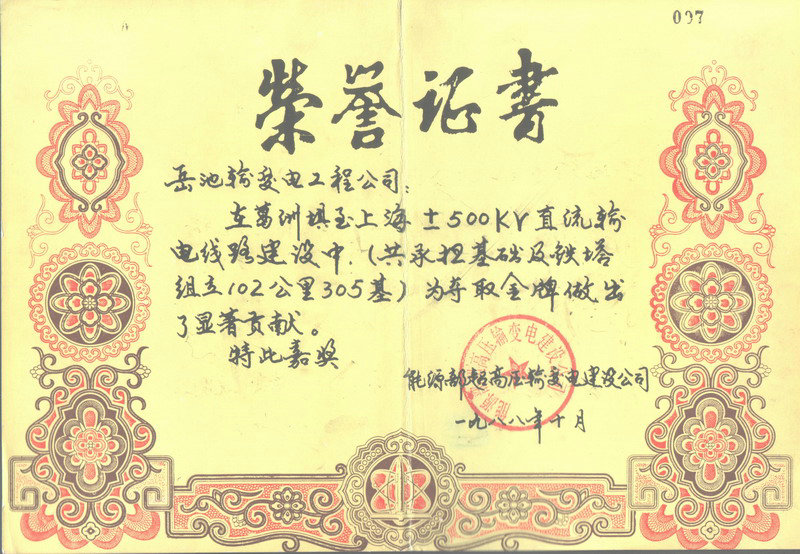 007
荣誉证书
岳池输变电工程公司：
在葛洲填至上海±500KV直流输
电线路建设中，（共承担基础及铁塔
组立102公里305基）为夺取金牌做出
了显著贡献。
特此嘉奖
能源部超高压输变电建设公司
一九八八年十月